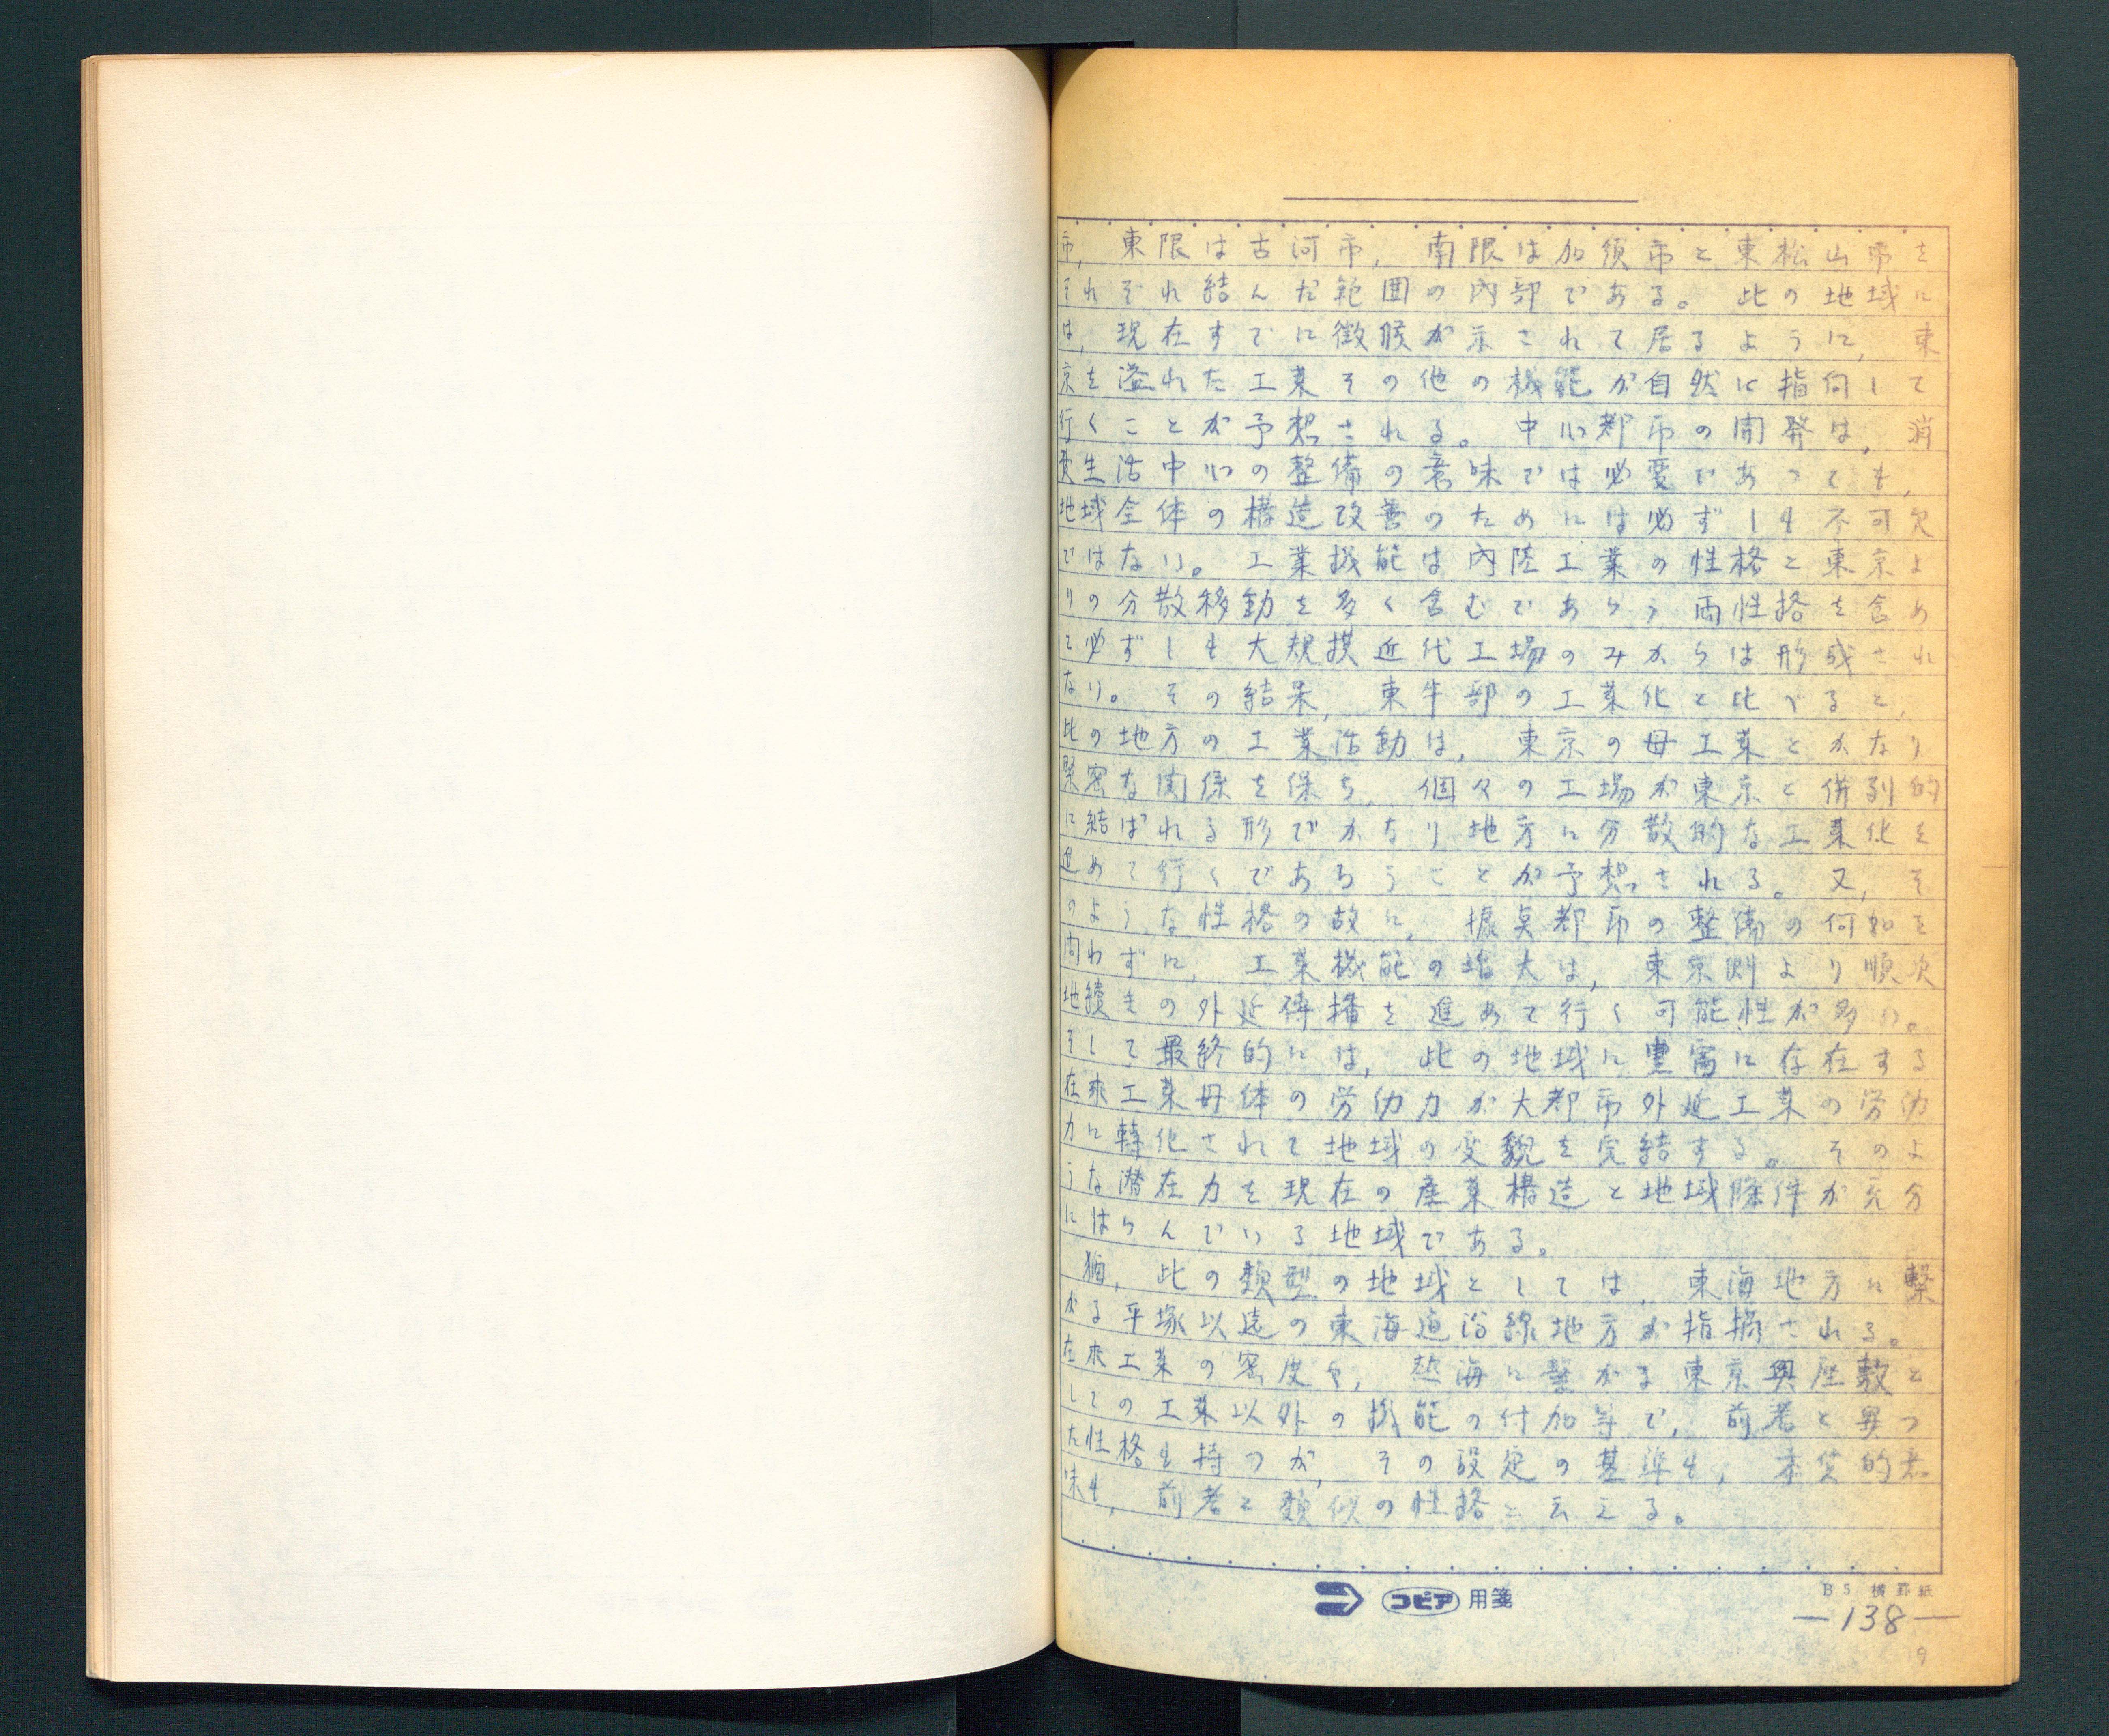 市, 東限は古河市, 南限は加須市と東松山市を
それぞれ結んだ範囲の内部である。此の地域に
は, 現在すでに徴候が示されて居るように, 東
京を溢れた工業その他の機能が自然に指向して
行くことが予想される。中心都市の開発は, 消
費生活中心の整備の意味では必要であっても,
地域全体の構造改善のためには必ずしも不可欠
ではない。工業機能は内陸工業の性格と東京よ
りの分散移動を多く含むであらう両性格を含め
て必ずしも大規模近代工場のみからは形成され
ない。その結果, 東半部の工業化と比べると,
此の地方の工業活動は, 東京の母工業とかなり
緊密な関係を保ち, 個々の工場が東京と併列的
に結ばれる形でかなり地方に分散的な工業化を
進めて行くであろうことが予想される。又, そ
のような性格の故に, 拠点都市の整備の何如を
問わずに, 工業機能の増大は, 東京側より順次
地続きの外延伝播を進めて行く可能性が多い。
そして最終的には, 此の地域に豊富に存在する
在来工業母体の労働力が大都市外延工業の労働
力に轉化されて地域の変貌を完結する。そのよ
うな潜在力を現在の産業構造と地域條件が充分
にはらんでいる地域である。
猶, 此の類型の地域としては, 東海地方に繋
がる平塚以遠の東海道沿線地方が指摘される。
在来工業の密度や, 熱海に繋がる東京奥座敷と
しての工業以外の機能の付加等で, 前者と異っ
た性格も持つが, その設定の基準も, 本質的意
味も, 前者と類似の性格と云える。
コピア 用箋
B5 横罫紙
—138—
19